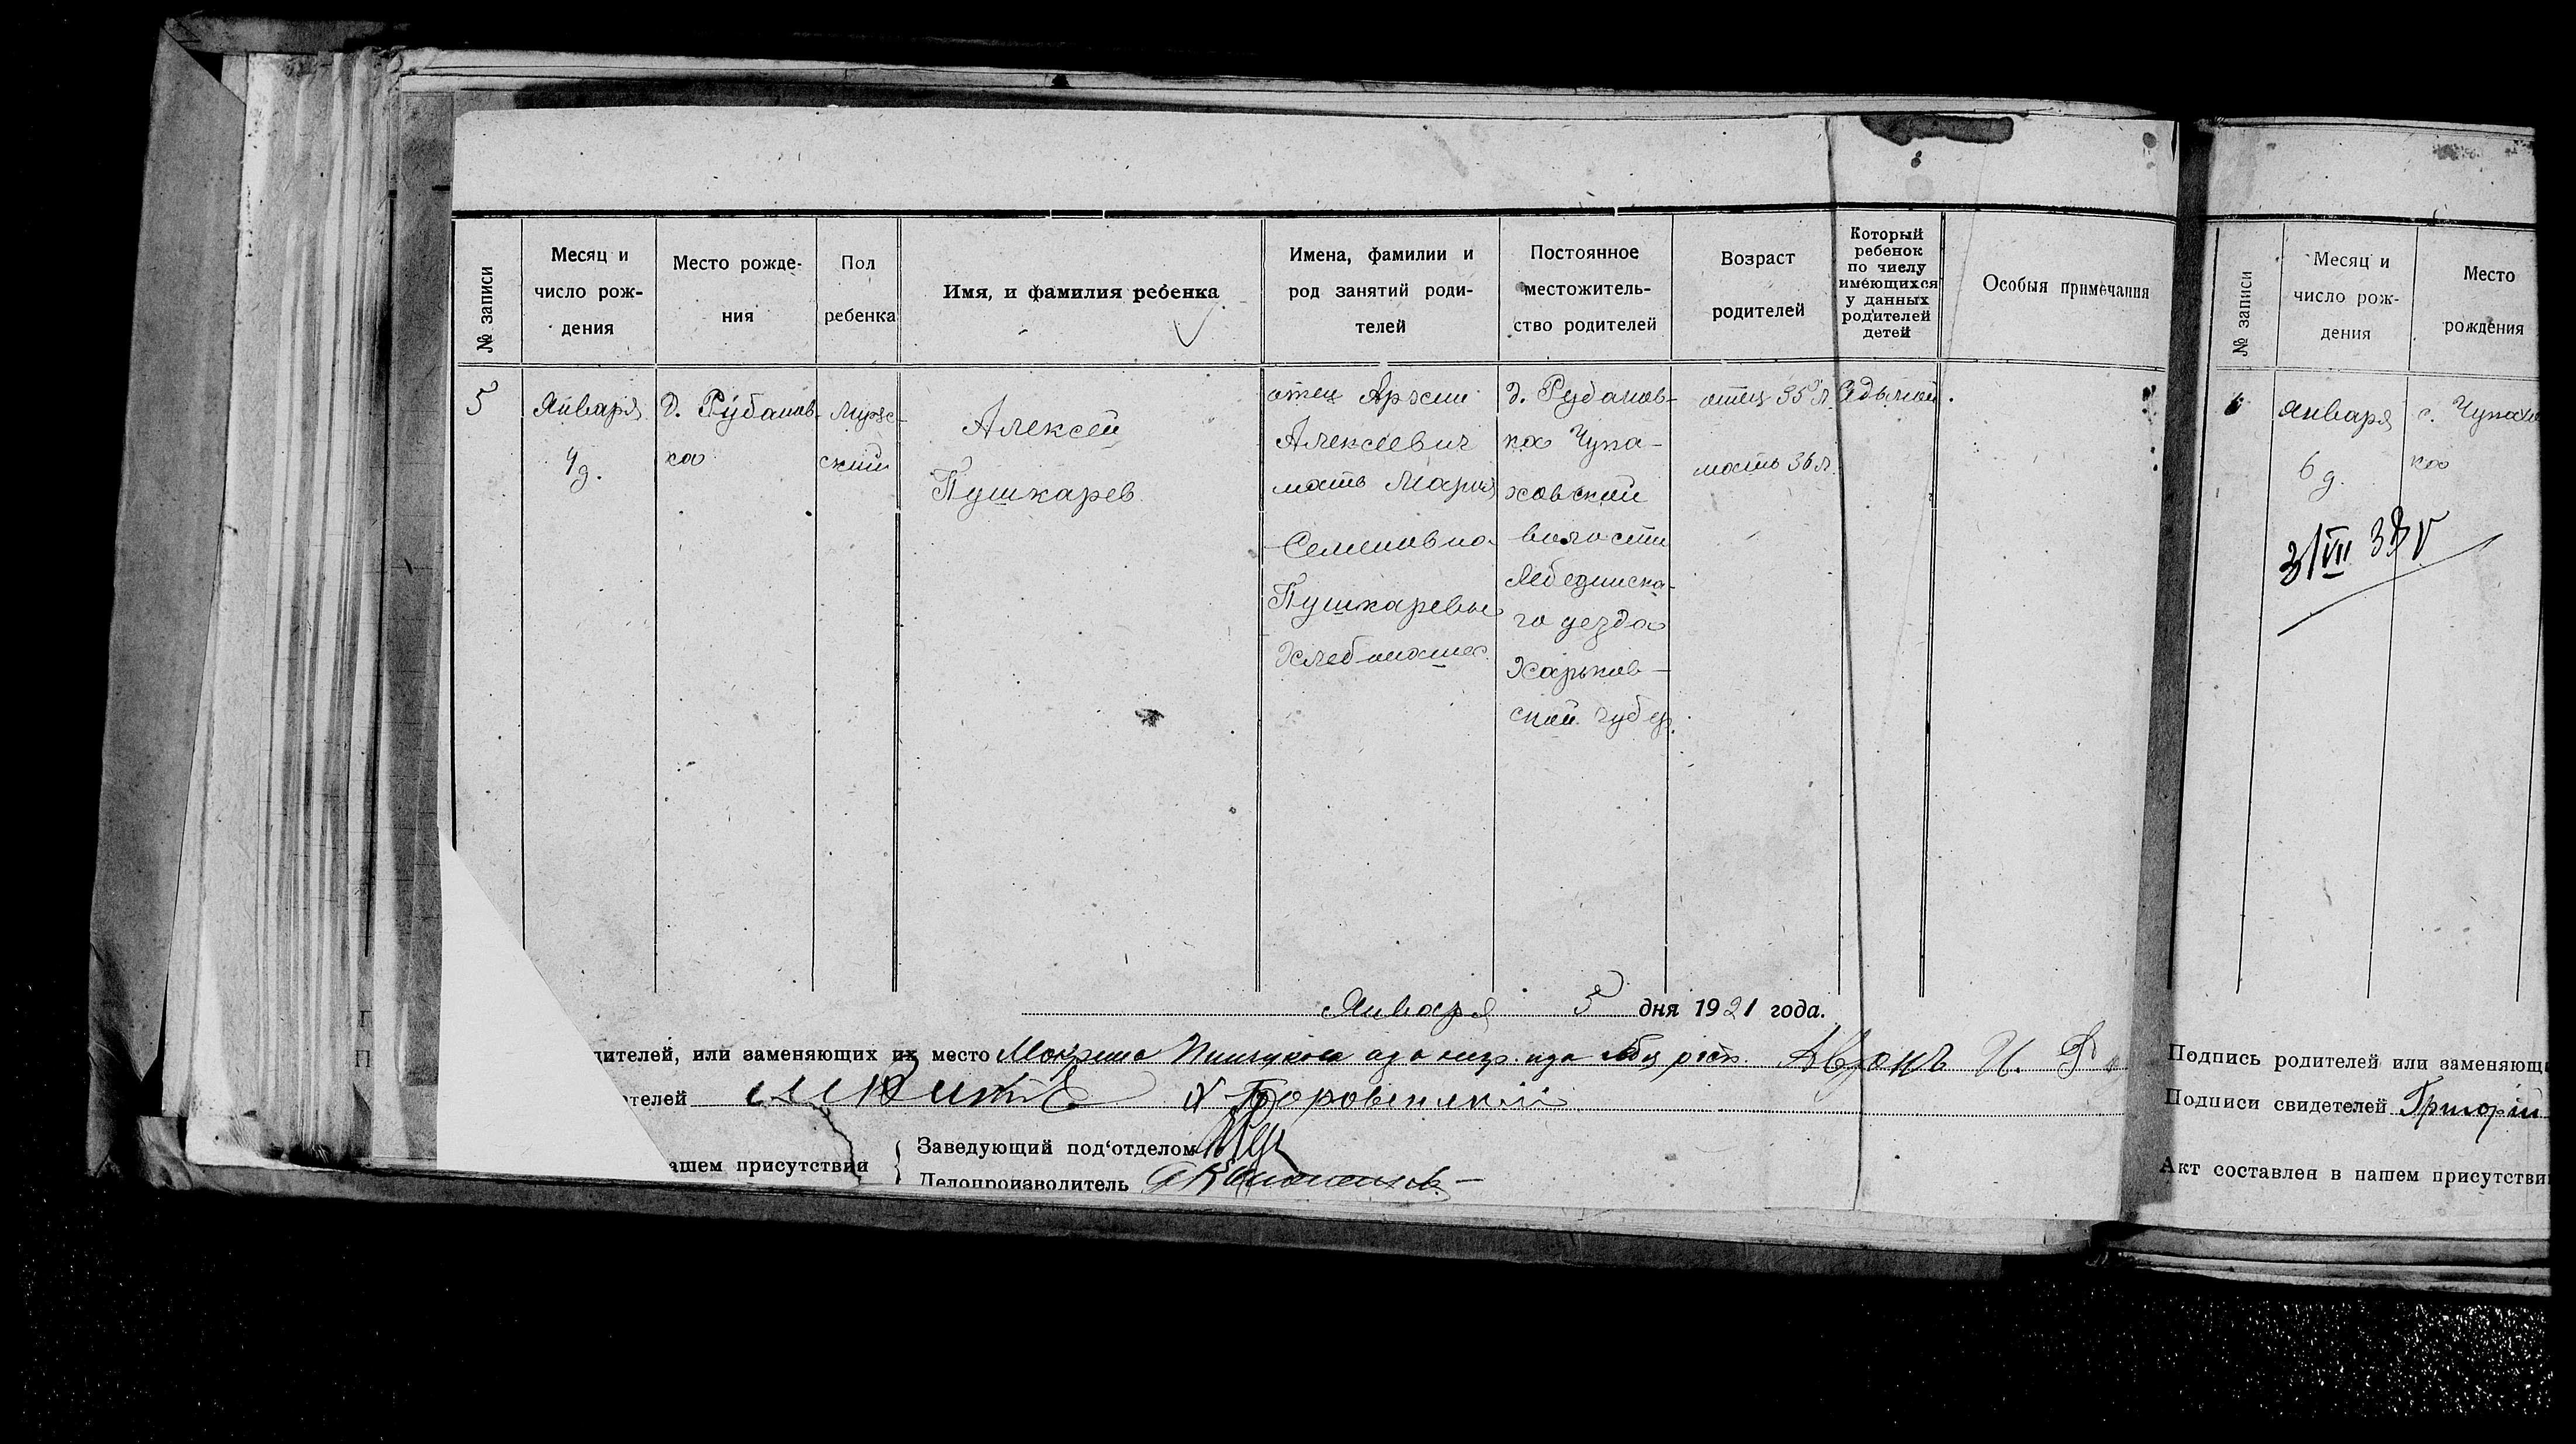 № записи
Месяц и
число рож-
дения
Место рожде-
ния
Пол
ребенка
Имя, и фамилия ребенка
Имена, фамилии и
род занятий роди-
телей
Постоянное
местожитель-
ство родителей
Возраст
родителей
Который
ребенок
по числу
имеющихся
у данных
родителей
детей
Особыя примечания
5
Января
4 д.
д. Рубанов-
ка
Муж-
ской
Алексей
Пушкарев
отец
Алексеевич
мать Мария
Семеновна
Пушкаревы
Хлебопашес.
д. Рубанов-
ка Чупа-
ховской
волости
Лебединска-
го уезда
Харьков-
ской губер.
отец 35 л.
мать 36 л.
Седьмой
Января 5 дня 1921 года.
ителей, или заменяющих их место
телей
ашем присутствии
Заведующий под'отделом
Делопроизводитель
№ записи
Месяц и
число рож-
дения
Место
рождения
Января
6 д.
с. Чупахо
ка
Подпись родителей или заменяющ
Подписи свидетелей Григорій
Акт составлен в нашем присутстви